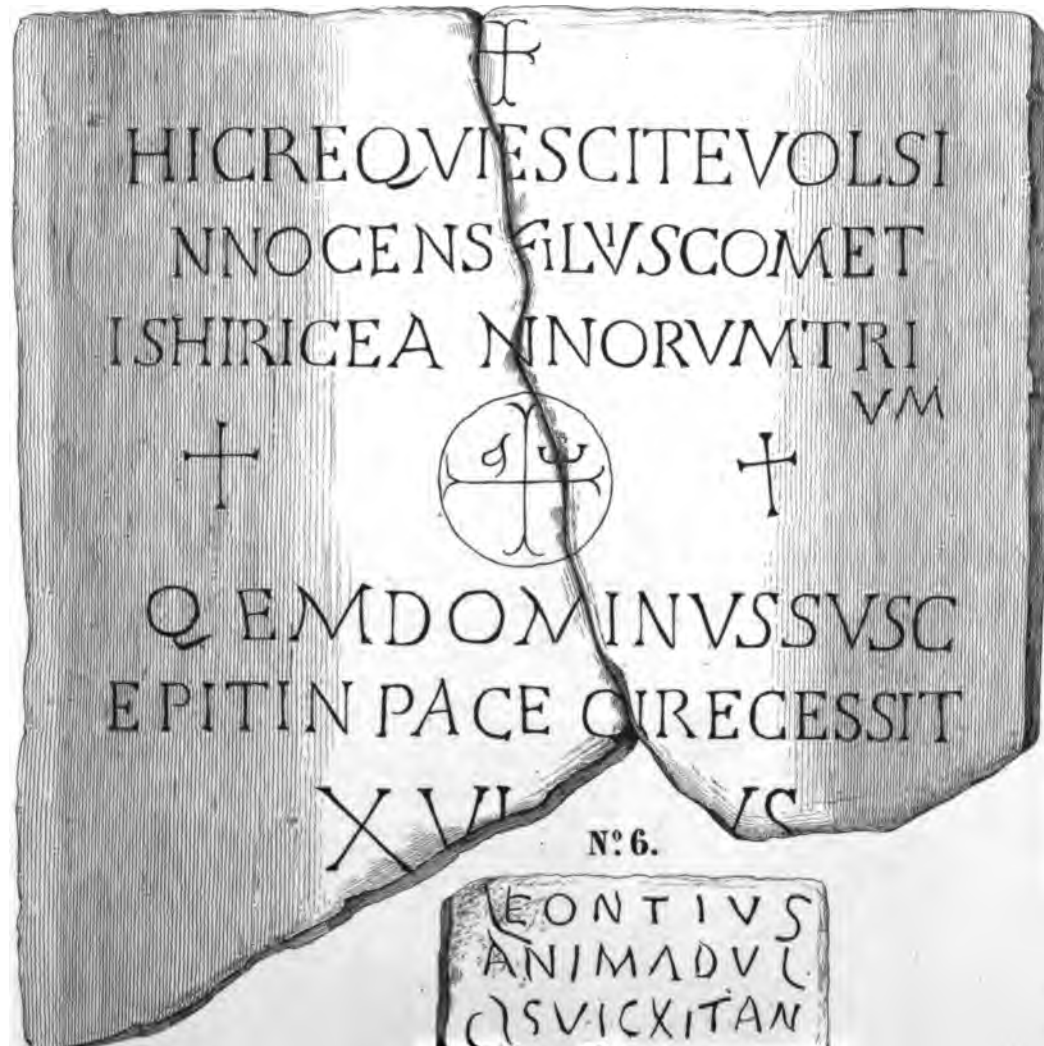 HICREQVIESCITEVOLSI
NNOCENS FiLIVSCOMET
ISHIRICEA NNORVMTRI
VM
Q EMDOMINVSSVSC
EPITIN PACE QIRECESSIT
XVI VS
Nº 6.
LEONTIVS
ANIMADVL